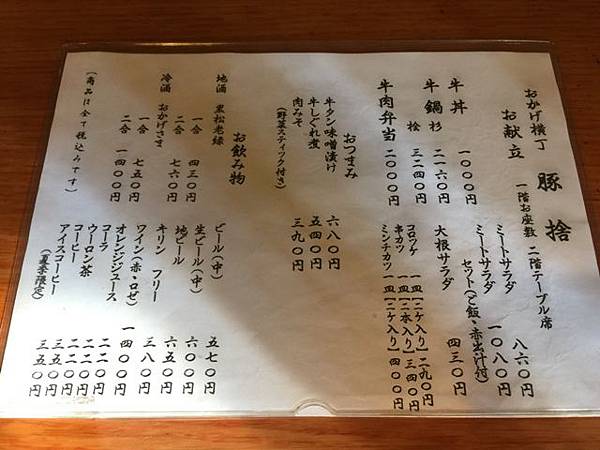 おかげ横丁 豚捨
お献立 一階お座敷 二階テーブル席
牛丼 一〇〇〇円
牛鍋 杉 二一六〇円
桧 三二四〇円
牛肉弁当 二〇〇〇円
ミートサラダ 八六〇円
ミートサラダ 一〇八〇円
セット(ご飯・赤出汁付)
大根サラダ 四三〇円
コロッケ 一皿【二ケ入り】 二九〇円
串カツ 一皿【二本入り】 三四〇円
ミンチカツ 一皿【二ケ入り】 四〇〇円
おつまみ
牛タン味噌漬け 六八〇円
牛しぐれ煮 五四〇円
肉みそ 三九〇円
(野菜スティック付き)
お飲み物
地酒 黒松老緑
一合 四三〇円
二合 七六〇円
冷酒 おかげさま
一合 七五〇円
二合 一四〇〇円
(商品は全て税込みです)
ビール(中) 五七〇円
生ビール(中) 六五〇円
地ビール 六五〇円
キリン フリー 三八〇円
ワイン(赤・ロゼ) 一四〇〇円
オレンジジュース 二二〇円
コーラ 二二〇円
ウーロン茶 二二〇円
コーヒー 三五〇円
アイスコーヒー 三五〇円
(夏季限定)